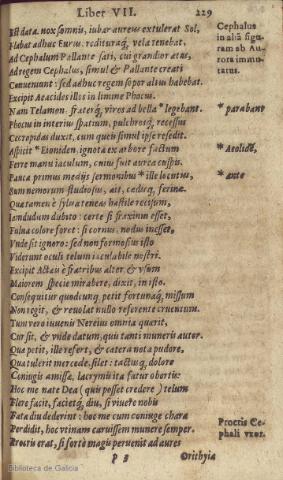 Liber VII. 229
Est data. nox somnis, iubar aureus extulerat Sol,
Flabat adhuc Eurus. redituraq; vela tenebat.
Ad Cephalum Pallante sati, cui grandior ætas,
Ad regem Cephalus, simul & Pallante creati
Conueniunt: sed adhuc regem sopor altus habebat.
Excipit Aeacides illos in limine Phocus.
Nam Telamon, fraterq; viros ad bella * legebant.
Phocus in interius spatium, pulchrosq; recessus
Cecropidas duxit, cum queis simul ipse resedit.
Aspicit * Eioniden ignota ex arbore factum
Ferre manu iaculum, cuius fuit aurea cuspis.
Pauca prius medijs sermonibus * ille locutus,
Sum nemorum studiosus, ait, cædisq; ferinæ.
Qua tamen è sylua teneas hastile recisum,
Iamdudum dubito: certe si fraxinus esset,
Fulua colore foret: si cornus, nodus inesset,
Vnde sit ignoro: sed non formosius isto
Viderunt oculi telum iaculabile nostri.
Excipit Actæis è fratribus alter & vsum
Maiorem specie mirabere, dixit, in isto.
Consequitur quodcunq; petit fortunaq; missum
Non regit, & reuolat nullo referente cruentum.
Tum vero iuuenis Nereius omnia quærit,
Cur sit, & vnde datum, quis tanti muneris autor.
Quæ petit, ille refert, & cætera nota pudore,
Qua tulerit mercede, silet: tactusq; dolore
Coniugis amissæ, lacrymis ita fatur obortis:
Hoc me nate Dea (quis posset credere) telum
Flere facit, facietq; diu, si viuere nobis
Fata diu dederint: hoc me cum coniuge chara
Perdidit, hoc vtinam caruissem munere semper.
Procris erat, si forte magis peruenit ad aures
P 3 Orithyia
Cephalus
in aliā figu
ram ob Au
rora immu-
tatus.
* parabant
* Aeoliden
* ante
Procris Ce-
phali vxor.
Biblioteca de Galicia